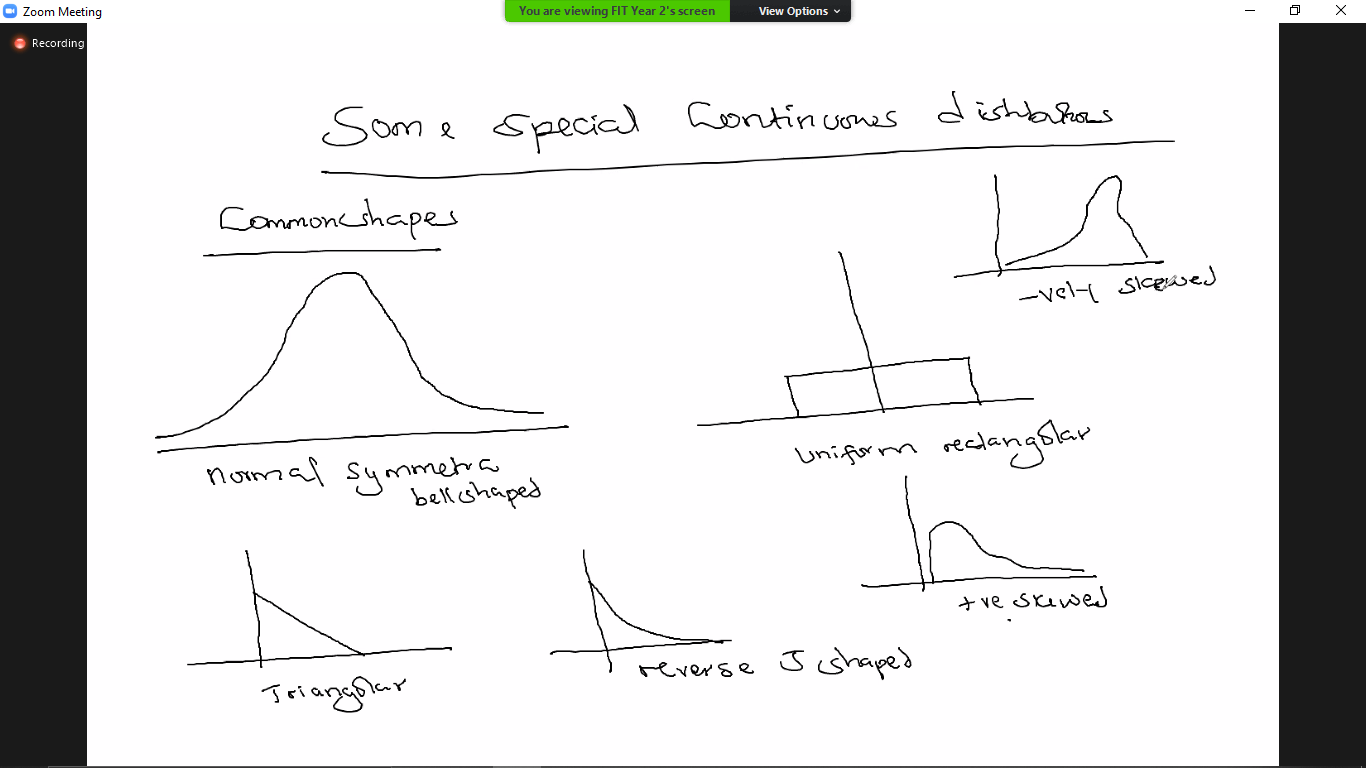 Zoom Meeting
You are viewing FIT Year 2's screen
View Options
Recording
Some special Continuous distributions
Common shapes
-vely skewed
normal symmetra
bell shaped
uniform rectangular
+ve skewed
Triangular
reverse J shaped